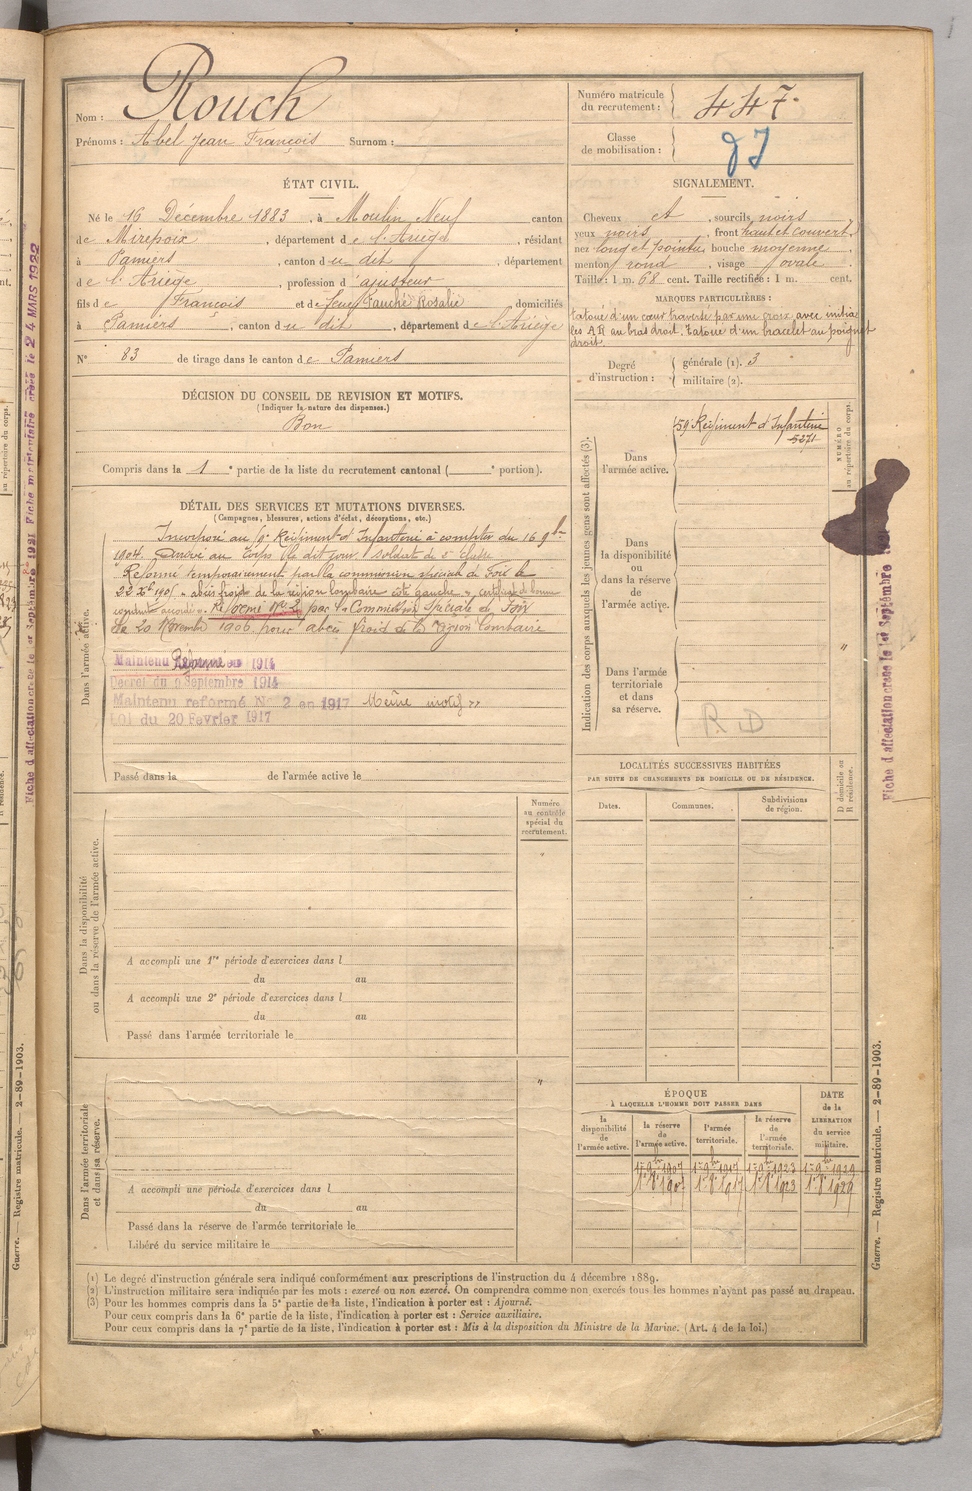 Nom : Rouch
Prénoms : Abel Jean François Surnom :
Numéro matricule du recrutement : 447.
Classe de mobilisation :
ÉTAT CIVIL.
Né le 16 Décembre 1883, à Moulin Neuf canton
de Mirepoix, département de l'Ariège, résidant
à Pamiers, canton du dit, département
de l'Ariège, profession d'ajusteur
fils de François et de feue Rosalie domiciliés
à Pamiers, canton du dit, département de l'Ariège
N° 83 de tirage dans le canton de Pamiers
SIGNALEMENT.
Cheveux et, sourcils noirs
yeux noirs, front haut et couvert,
nez long et pointu, bouche moyenne
menton rond, visage ovale
Taille : 1 m. 68 cent. Taille rectifiée : 1 m. cent.
MARQUES PARTICULIÈRES :
Tatoué d'un cœur traversé par une croix avec initia
les A R au bras droit, tatoué d'un bracelet au poignet
droit.
Degré d'instruction : générale (1). 3
militaire (2).
DÉCISION DU CONSEIL DE REVISION ET MOTIFS.
(Indiquer la nature des dispenses.)
Bon
Compris dans la 1e partie de la liste du recrutement cantonal ( e portion).
DÉTAIL DES SERVICES ET MUTATIONS DIVERSES.
(Campagnes, blessures, actions d'éclat, décorations, etc.)
Dans l'armée active.
Incorporé au Régiment d'Infanterie à compter du 16 9bre
1904. Arrivé au corps le dit jour. Soldat de 2e classe
Réformé temporairement par la commission spéciale de Foix le
"abcès froid de la région lombaire côté gauche" certificat de bonne
conduite accordé. Réformé N° 2 par la Commission Spéciale de Foix
le 20 Novembre 1906 pour abcès froid de la région lombaire
Maintenu Réformé en 1914
Décret du 9 Septembre 1914
Maintenu reformé N° 2 en 1917 Même motif "
Loi du 20 Fevrier 1917
Passé dans la de l'armée active le
Indication des corps auxquels les jeunes gens sont affectés (3).
Dans l'armée active. 59e Régiment d'Infanterie
Dans la disponibilité ou dans la réserve de l'armée active.
Dans l'armée territoriale et dans sa réserve.
R D
NUMÉRO au répertoire du corps.
"
LOCALITÉS SUCCESSIVES HABITÉES
PAR SUITE DE CHANGEMENTS DE DOMICILE OU DE RÉSIDENCE.
Dates. Communes. Subdivisions de région.
D domicile ou R résidence.
Numéro au contrôle spécial du recrutement.
"
Dans la disponibilité ou dans la réserve de l'armée active.
A accompli une 1re période d'exercices dans l
du au
A accompli une 2e période d'exercices dans l
du au
Passé dans l'armée territoriale le
"
Dans l'armée territoriale et dans sa réserve.
A accompli une période d'exercices dans l
du au
Passé dans la réserve de l'armée territoriale le
Libéré du service militaire le
ÉPOQUE
À LAQUELLE L'HOMME DOIT PASSER DANS
la disponibilité de l'armée active.
la réserve de l'armée active.
l'armée territoriale.
la réserve de l'armée territoriale.
DATE de la LIBÉRATION du service militaire.
1er 9bre 1907 1er 9bre 1917 1er 9bre 1923 1er 9bre 1929
(1) Le degré d'instruction générale sera indiqué conformément aux prescriptions de l'instruction du 4 décembre 1889.
(2) L'instruction militaire sera indiquée par les mots : exercé ou non exercé. On comprendra comme non exercés tous les hommes n'ayant pas passé au drapeau.
(3) Pour les hommes compris dans la 5e partie de la liste, l'indication à porter est : Ajourné.
Pour ceux compris dans la 6e partie de la liste, l'indication à porter est : Service auxiliaire.
Pour ceux compris dans la 7e partie de la liste, l'indication à porter est : Mis à la disposition du Ministre de la Marine. (Art. 4 de la loi.)
Guerre. — Registre matricule. — 2-89-1903.
Guerre. — Registre matricule. — 2-89-1903.
Fiche d'affectation creee le 1er Septembre
Fiche d'affectation creee le 1er Septembre 1921 Fiche matriculaire creee le 24 MARS 1922